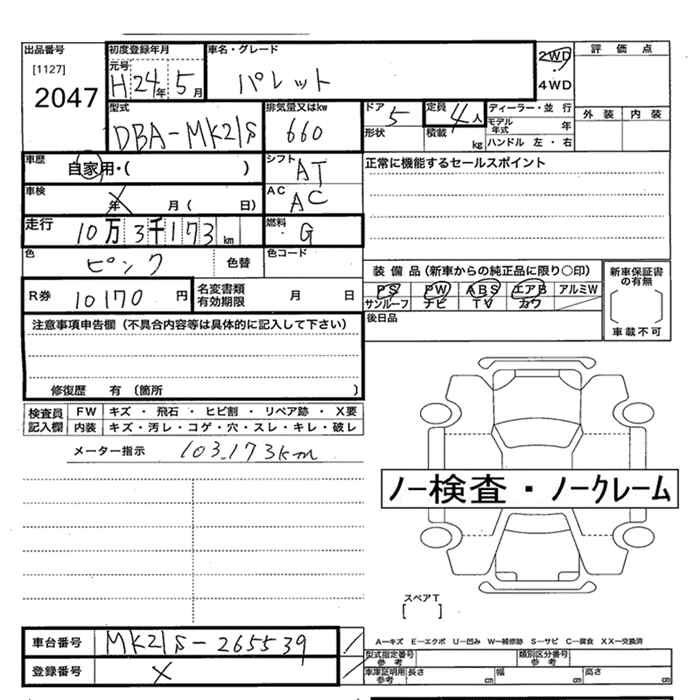 出品番号
[1127]
2047
初度登録年月
元号
H24年5月
車名・グレード
パレット
2WD
4WD
評価点
外装 内装
型式
DBA-MK21S
排気量又はkw
660
ドア 5
形状
定員 4人
積載 kg
ディーラー・並行
モデル年式 年
ハンドル 左・右
車歴
自家用・( )
シフト
AT
正常に機能するセールスポイント
車検
X
年 月( 日)
AC
AC
走行
10万3千173km
燃料
G
色
ピンク
色替
色コード
R券 10170円
名変書類有効期限 月 日
装備品(新車からの純正品に限り○印)
PS PW ABS エアB アルミW
サンルーフ ナビ TV カワ
新車保証書の有無
車載不可
後日品
注意事項申告欄(不具合内容等は具体的に記入して下さい)
修復歴 有(箇所 )
検査員記入欄
FW キズ・飛石・ヒビ割・リペア跡・X要
内装 キズ・汚レ・コゲ・穴・スレ・キレ・破レ
メーター指示 103,173km
ノー検査・ノークレーム
スペアT
[ ]
車台番号 MK21S-265539
登録番号 X
A－キズ E－エクボ U－凹み W－補修跡 S－サビ C－腐食 XX－交換済
型式指定番号参考
類別区分番号参考
車庫証明用参考 長さ cm 幅 cm 高さ cm